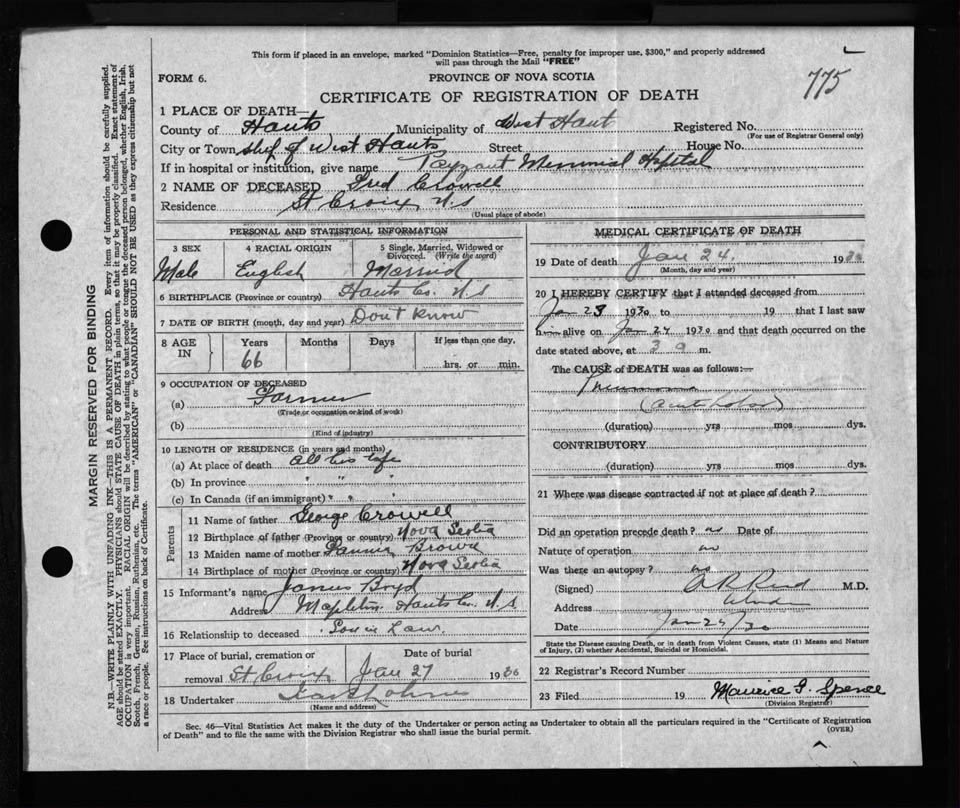 This form if placed in an envelope, marked "Dominion Statistics—Free, penalty for improper use, $300," and properly addressed
will pass through the Mail "FREE"
FORM 6.
PROVINCE OF NOVA SCOTIA
775
CERTIFICATE OF REGISTRATION OF DEATH
1 PLACE OF DEATH—
County of Hants Municipality of West Hant Registered No.
(For use of Registrar General only)
City or Town Shef of West Hants Street House No.
If in hospital or institution, give name Payzant Memorial Hospital
2 NAME OF DECEASED Fred Crowell
Residence St Croix N.S
(Usual place of abode)
PERSONAL AND STATISTICAL INFORMATION
3 SEX 4 RACIAL ORIGIN 5 Single, Married, Widowed or
Divorced. (Write the word)
Male English Married
6 BIRTHPLACE (Province or country) Hants Co. N.S
7 DATE OF BIRTH (month, day and year) Don't Know
8 AGE IN Years Months Days If less than one day,
66 hrs. or min.
9 OCCUPATION OF DECEASED
(a) Farmer
(Trade or occupation or kind of work)
(b)
(Kind of industry)
10 LENGTH OF RESIDENCE (in years and months)
(a) At place of death all his life
(b) In province " " "
(c) In Canada (if an immigrant) " " "
Parents
11 Name of father George Crowell
12 Birthplace of father (Province or country) Nova Scotia
13 Maiden name of mother Brown
14 Birthplace of mother (Province or country) Nova Scotia
15 Informant's name James Boyd
Address Mapleton Hants Co. N.S.
16 Relationship to deceased Son in Law
17 Place of burial, cremation or removal St Croix
Date of burial Jan 27 1930
18 Undertaker
(Name and address)
MEDICAL CERTIFICATE OF DEATH
19 Date of death Jan 24, 1930
(Month, day and year)
20 I HEREBY CERTIFY that I attended deceased from
Jan 23 1930 to 19 that I last saw
h alive on Jan 24 1930 and that death occurred on
date stated above, at 3 a m.
The CAUSE of DEATH was as follows:—
Pneumonia
(acute lobar)
(duration) yrs mos dys.
CONTRIBUTORY
(duration) yrs mos dys.
21 Where was disease contracted if not at place of death?
Did an operation precede death? no Date of
Nature of operation no
Was there an autopsy? no
(Signed) Reid M.D.
Address Windsor
Date Jan 25/30
State the Disease causing Death, or in death from Violent Causes, state (1) Means and Nature
of Injury, (2) whether Accidental, Suicidal or Homicidal.
22 Registrar's Record Number
23 Filed 19 Maurice G. Spence
(Division Registrar)
Sec. 46—Vital Statistics Act makes it the duty of the Undertaker or person acting as Undertaker to obtain all the particulars required in the "Certificate of Registration
of Death" and to file the same with the Division Registrar who shall issue the burial permit.
(OVER)
MARGIN RESERVED FOR BINDING
N.B.—WRITE PLAINLY WITH UNFADING INK—THIS IS A PERMANENT RECORD. Every item of information should be carefully supplied.
AGE should be stated EXACTLY. PHYSICIANS should STATE CAUSE OF DEATH in plain terms, so that it may be properly classified. Exact statement of
OCCUPATION is very important. RACIAL ORIGIN will be described by stating to what people or tongue the deceased person belonged, whether English, Irish,
Scotch, French, German, Russian, Ruthenian, etc. The terms "AMERICAN" or "CANADIAN" SHOULD NOT BE USED as they express citizenship but not
a race or people. See instructions on back of Certificate.